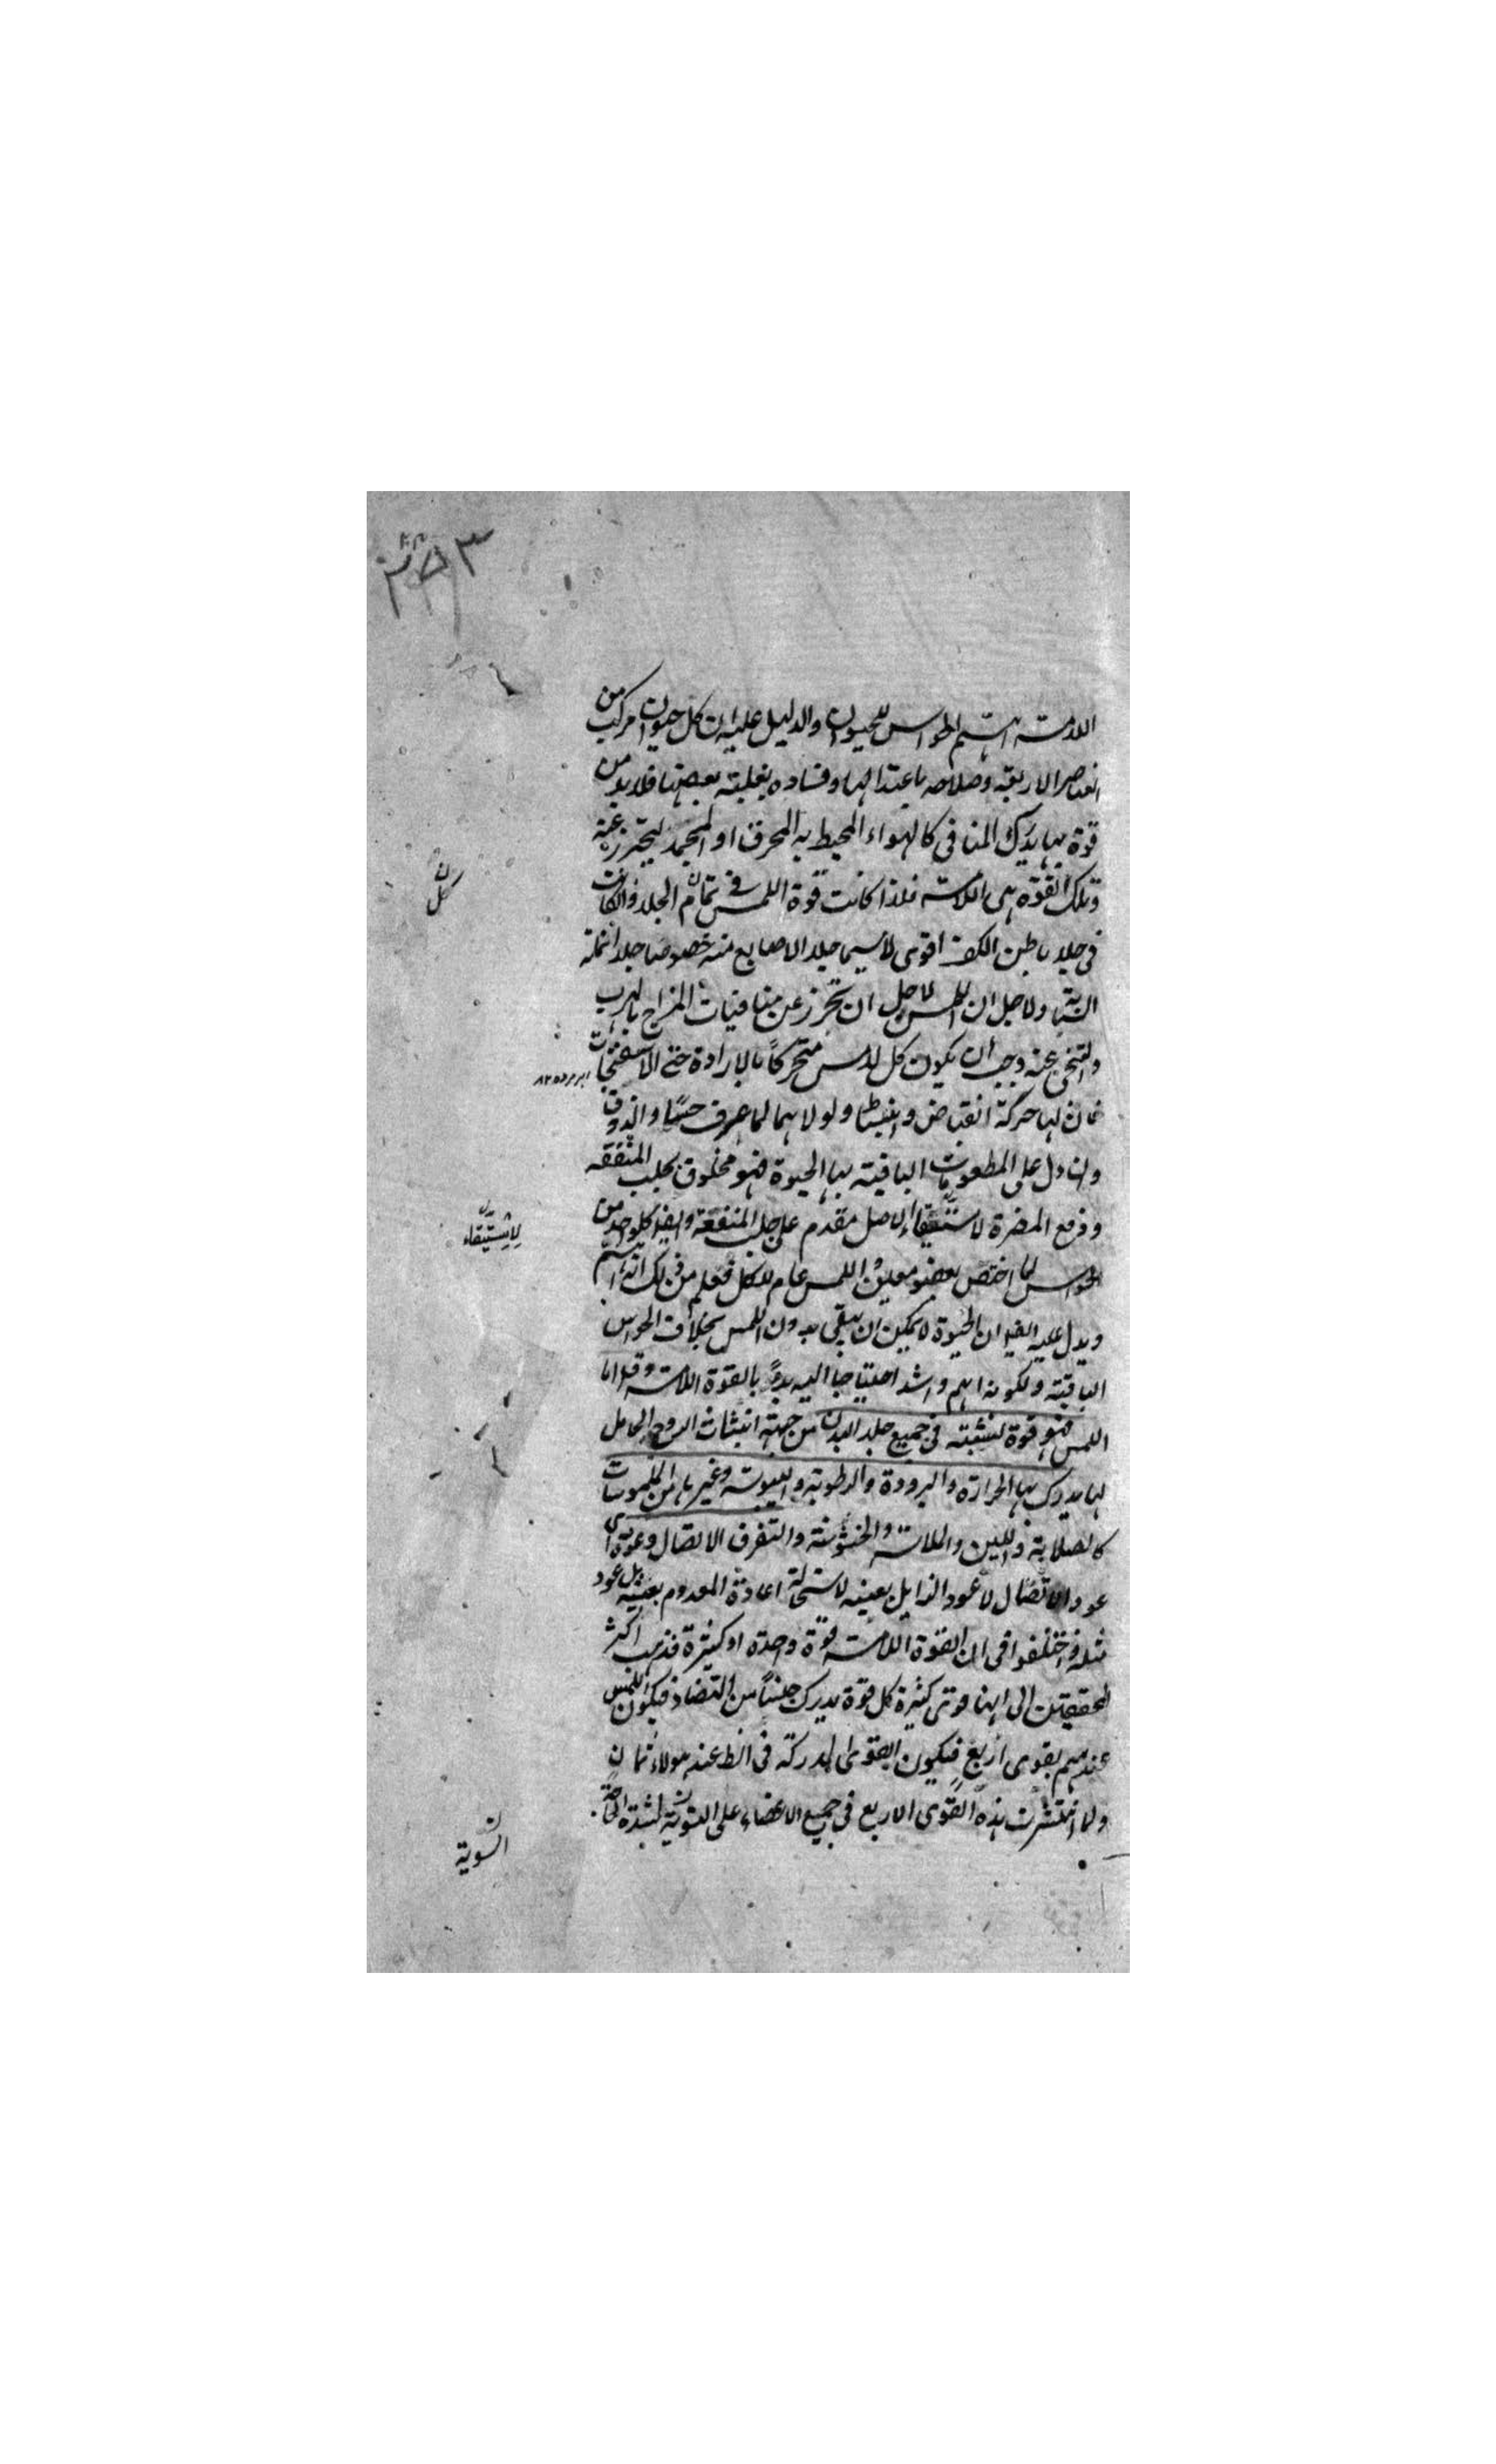 ٣٥٣
اللامسة اهم الحواس للحيوان والدليل عليه ان كل حيوان مركب من
العناصر الاربعة وصلاحه باعتدالها وفساده بغلبة بعضها فلا بد من
قوة بها يدرك المنافى كالهواء المحيط به المحرق او المجمد ليتحرز عنه
وتلك القوة هى اللامسة فلذا كانت قوة اللمس فى تمام الجلد وان كانت
فى جلد باطن الكف اقوى لا سيما جلد الاصابع منه خصوصا جلد انملة
السبابة ولاجل ان اللمس لاجل ان تحرز عن منافيات المزاج بالهرب
والتنحى عنه وجب أن يكون كل لامس متحركاً بالارادة حتى الاسفنجات
فان لها حركة انقباض وانبساط ولولاهما لما عرف حسها والذوق
وان دل على المطعومات الباقية بها الحيوة فهو مخلوق لجلب المنفعة
ودفع المضرة لاستبقاء الاصل مقدم على جلب المنفعة وايضا كل واحد من
الحواس لما اختص بعضو معين واللمس عام للكل فعلم من ذلك انه اهم
ويدل عليه ايضا ان الحيوة لا يمكن ان يبقى بدون اللمس بخلاف الحواس
الباقية ولكونه اهم واشد احتياجا اليه بدء بالقوة اللامسة وقال اما
اللمس فهو قوة منبثة فى جميع جلد البدن من جهة انبثاث الروح الحامل
لها يدرك بها الحرارة والبرودة والرطوبة واليبوسة وغيرها من الملموسات
كالصلابة واللين والملاسة والخشونة والتفرق الاتصال وعوده اى
عود الاتصال لا عود الزايل بعينه لاستحالة اعادة المعدوم بعينه بل عود
مثله واختلفوا فى ان القوة اللامسة قوة واحدة او كثيرة فذهب اكثر
المحققين الى انها قوى كثيرة كل قوة يدرك جنساً من التضاد فيكون اللمس
عندهم بقوى اربع فيكون القوى المدركة فى الظ عند هولاء ثمان
ولما انتشرت هذه القوى الاربع فى جميع الاعضاء على السوية لشدة الحاجة
كل
لاستبقاء
السوية